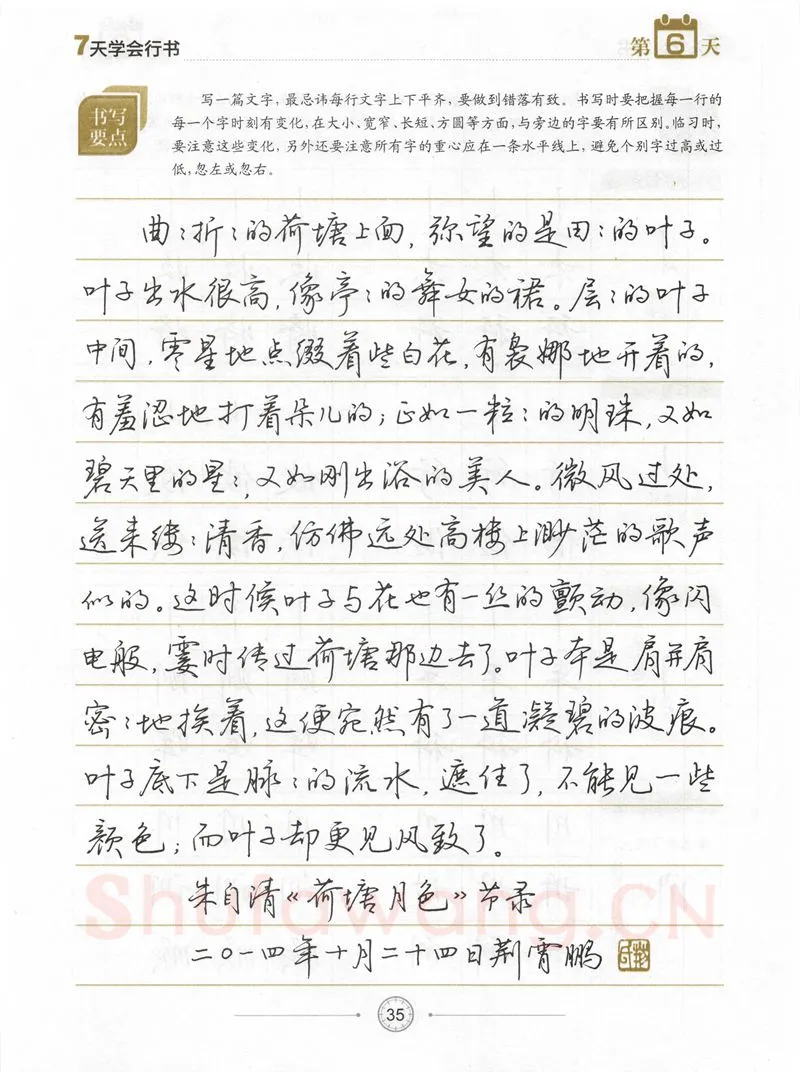 7天学会行书
第6天
书写
要点
写一篇文字，最忌讳每行文字上下平齐，要做到错落有致。书写时要把握每一行的
每一个字时刻有变化，在大小、宽窄、长短、方圆等方面，与旁边的字要有所区别。临习时，
要注意这些变化，另外还要注意所有字的重心应在一条水平线上，避免个别字过高或过
低，忽左或忽右。
曲：折：的荷塘上面，弥望的是田：的叶子。
叶子出水很高，像亭：的舞女的裙。层：的叶子
中间，零星地点缀着些白花，有袅娜地开着的，
有羞涩地打着朵儿的；正如一粒：的明珠，又如
碧天里的星：，又如刚出浴的美人。微风过处，
送来缕：清香，仿佛远处高楼上渺茫的歌声
似的。这时候叶子与花也有一丝的颤动，像闪
电般，霎时传过荷塘那边去了。叶子本是肩并肩
密：地挨着，这便宛然有了一道凝碧的波痕。
叶子底下是脉：的流水，遮住了，不能见一些
颜色；而叶子却更见风致了。
朱自清《荷塘月色》节录
二〇一四年十月二十四日荆霄鹏
Shufawang.CN
35